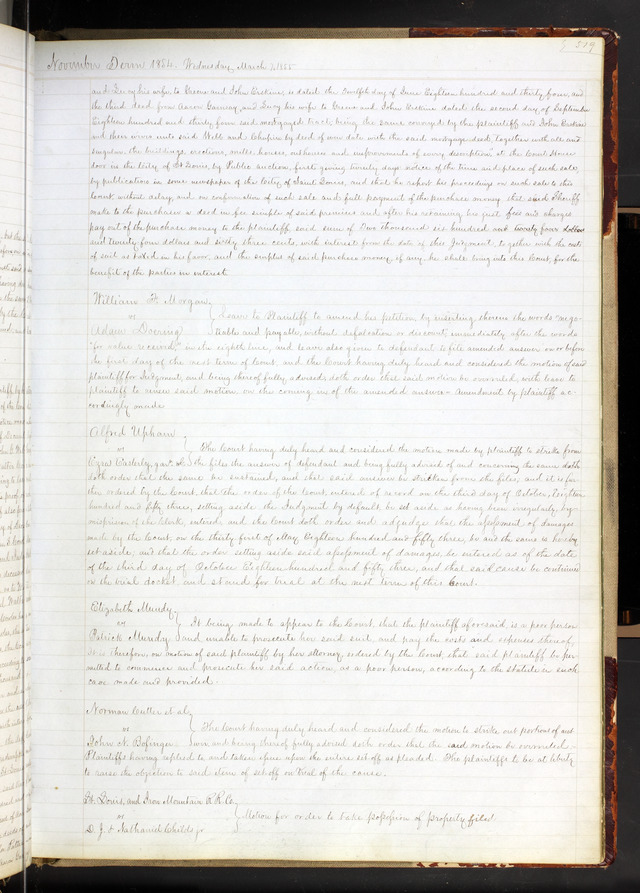 379
November Term 1854. Wednesday March 7, 1855
and Lucy his wife to Greene and John Erskine is dated the twelfth day of June Eighteen hundred and thirty four, and
the third deed from Aaron and Lucy his wife to Greene and John Erskine dated the second day of September
Eighteen hundred and thirty four said mortgaged tract, being the same conveyed by the plaintiff and John Erskine
and their wives unto said Wells and Chapin by deed of even date with the said mortgage deed, together with all and
singular the buildings, erections, mills, houses, outhouses and improvements of every description" at the Court House
door in the City of St Louis, by Public auction, first giving twenty days notice of the time and place of such sale,
by publications in some newspaper of the City of Saint Louis, and that he report his proceedings on such sale to this
Court without delay, and on confirmation of such sale and full payment of the purchase money that said Sheriff
make to the purchaser a deed in fee simple of said premises and after his retaining his just fees and charges
pay out of the purchase money to the plaintiff said sum of Two thousand six hundred and twenty four dollars
and twenty four dollars and sixty three cents, with interest from the date of this Judgment, together with the costs
of suit as taxed in his favor, and the surplus of said purchase money, if any, he shall bring into this Court, for the
benefit of the parties in interest
William F. Morgan
vs
Adam Doering
Leave to Plaintiff to amend his petition by inserting therein the words "nego-
tiable and payable, without defalcation or discount, immediately after the words
"for value received" in the eighth line, and leave also given to defendant to file amended answer on or before
the first day of the next term of Court and the Court having duly heard and considered the motion of said
plaintiff for Judgment, and being thereof fully advised, doth order that said motion be overruled, with leave to
plaintiff to renew said motion on the coming in of the amended answer - Amendment by plaintiff ac-
cordingly made
Alfred Upham
vs
Ezra Easterly, gar. &c
The Court having duly heard and considered the motion made by plaintiff to strike from
the files the answer of defendant and being fully advised of and concerning the same doth
doth order that the same be sustained, and that said answer be stricken from the files, and it is fur-
ther ordered by the Court, that the order of the Court entered of record on the third day of October, Eighteen
hundred and fifty three, setting aside the Judgment by default be set aside as having been irregularly, by
misprision of the Clerk, entered, and the Court doth order and adjudge that the assessment of damages
made by the Court, on the thirty first of May Eighteen hundred and fifty three, be and the same is hereby
set aside, and that the order setting aside said assessment of damages, be entered as of the date
of the third day of October Eighteen hundred and fifty three, and that said cause be continued
on the trial docket, and stand for trial at the next term of this Court.
Elizabeth Mundy
vs
Patrick Mundy
It being made to appear to the Court, that the plaintiff aforesaid, is a poor person
and unable to prosecute her said suit and pay the costs and expenses thereof,
it is therefore, on motion of said plaintiff by her attorney, ordered by the Court, that said plaintiff be per-
mitted to commence and prosecute her said action, as a poor person, according to the statute in such
case made and provided.
Norman Cutter et al
vs
John N. Bofinger
The Court having duly heard and considered the motion to strike out portions of ans
wer and being thereof fully advised doth order that the said motion be overruled.
Plaintiffs having replied to and taken issue upon the entire set off as pleaded The plaintiffs to be at liberty
to raise the objection to said item of set off on trial of the cause.
St. Louis, and Iron Mountain R. R. Co.
vs
D. J. & Nathaniel Childs jr
Motion for order to take possession of property filed